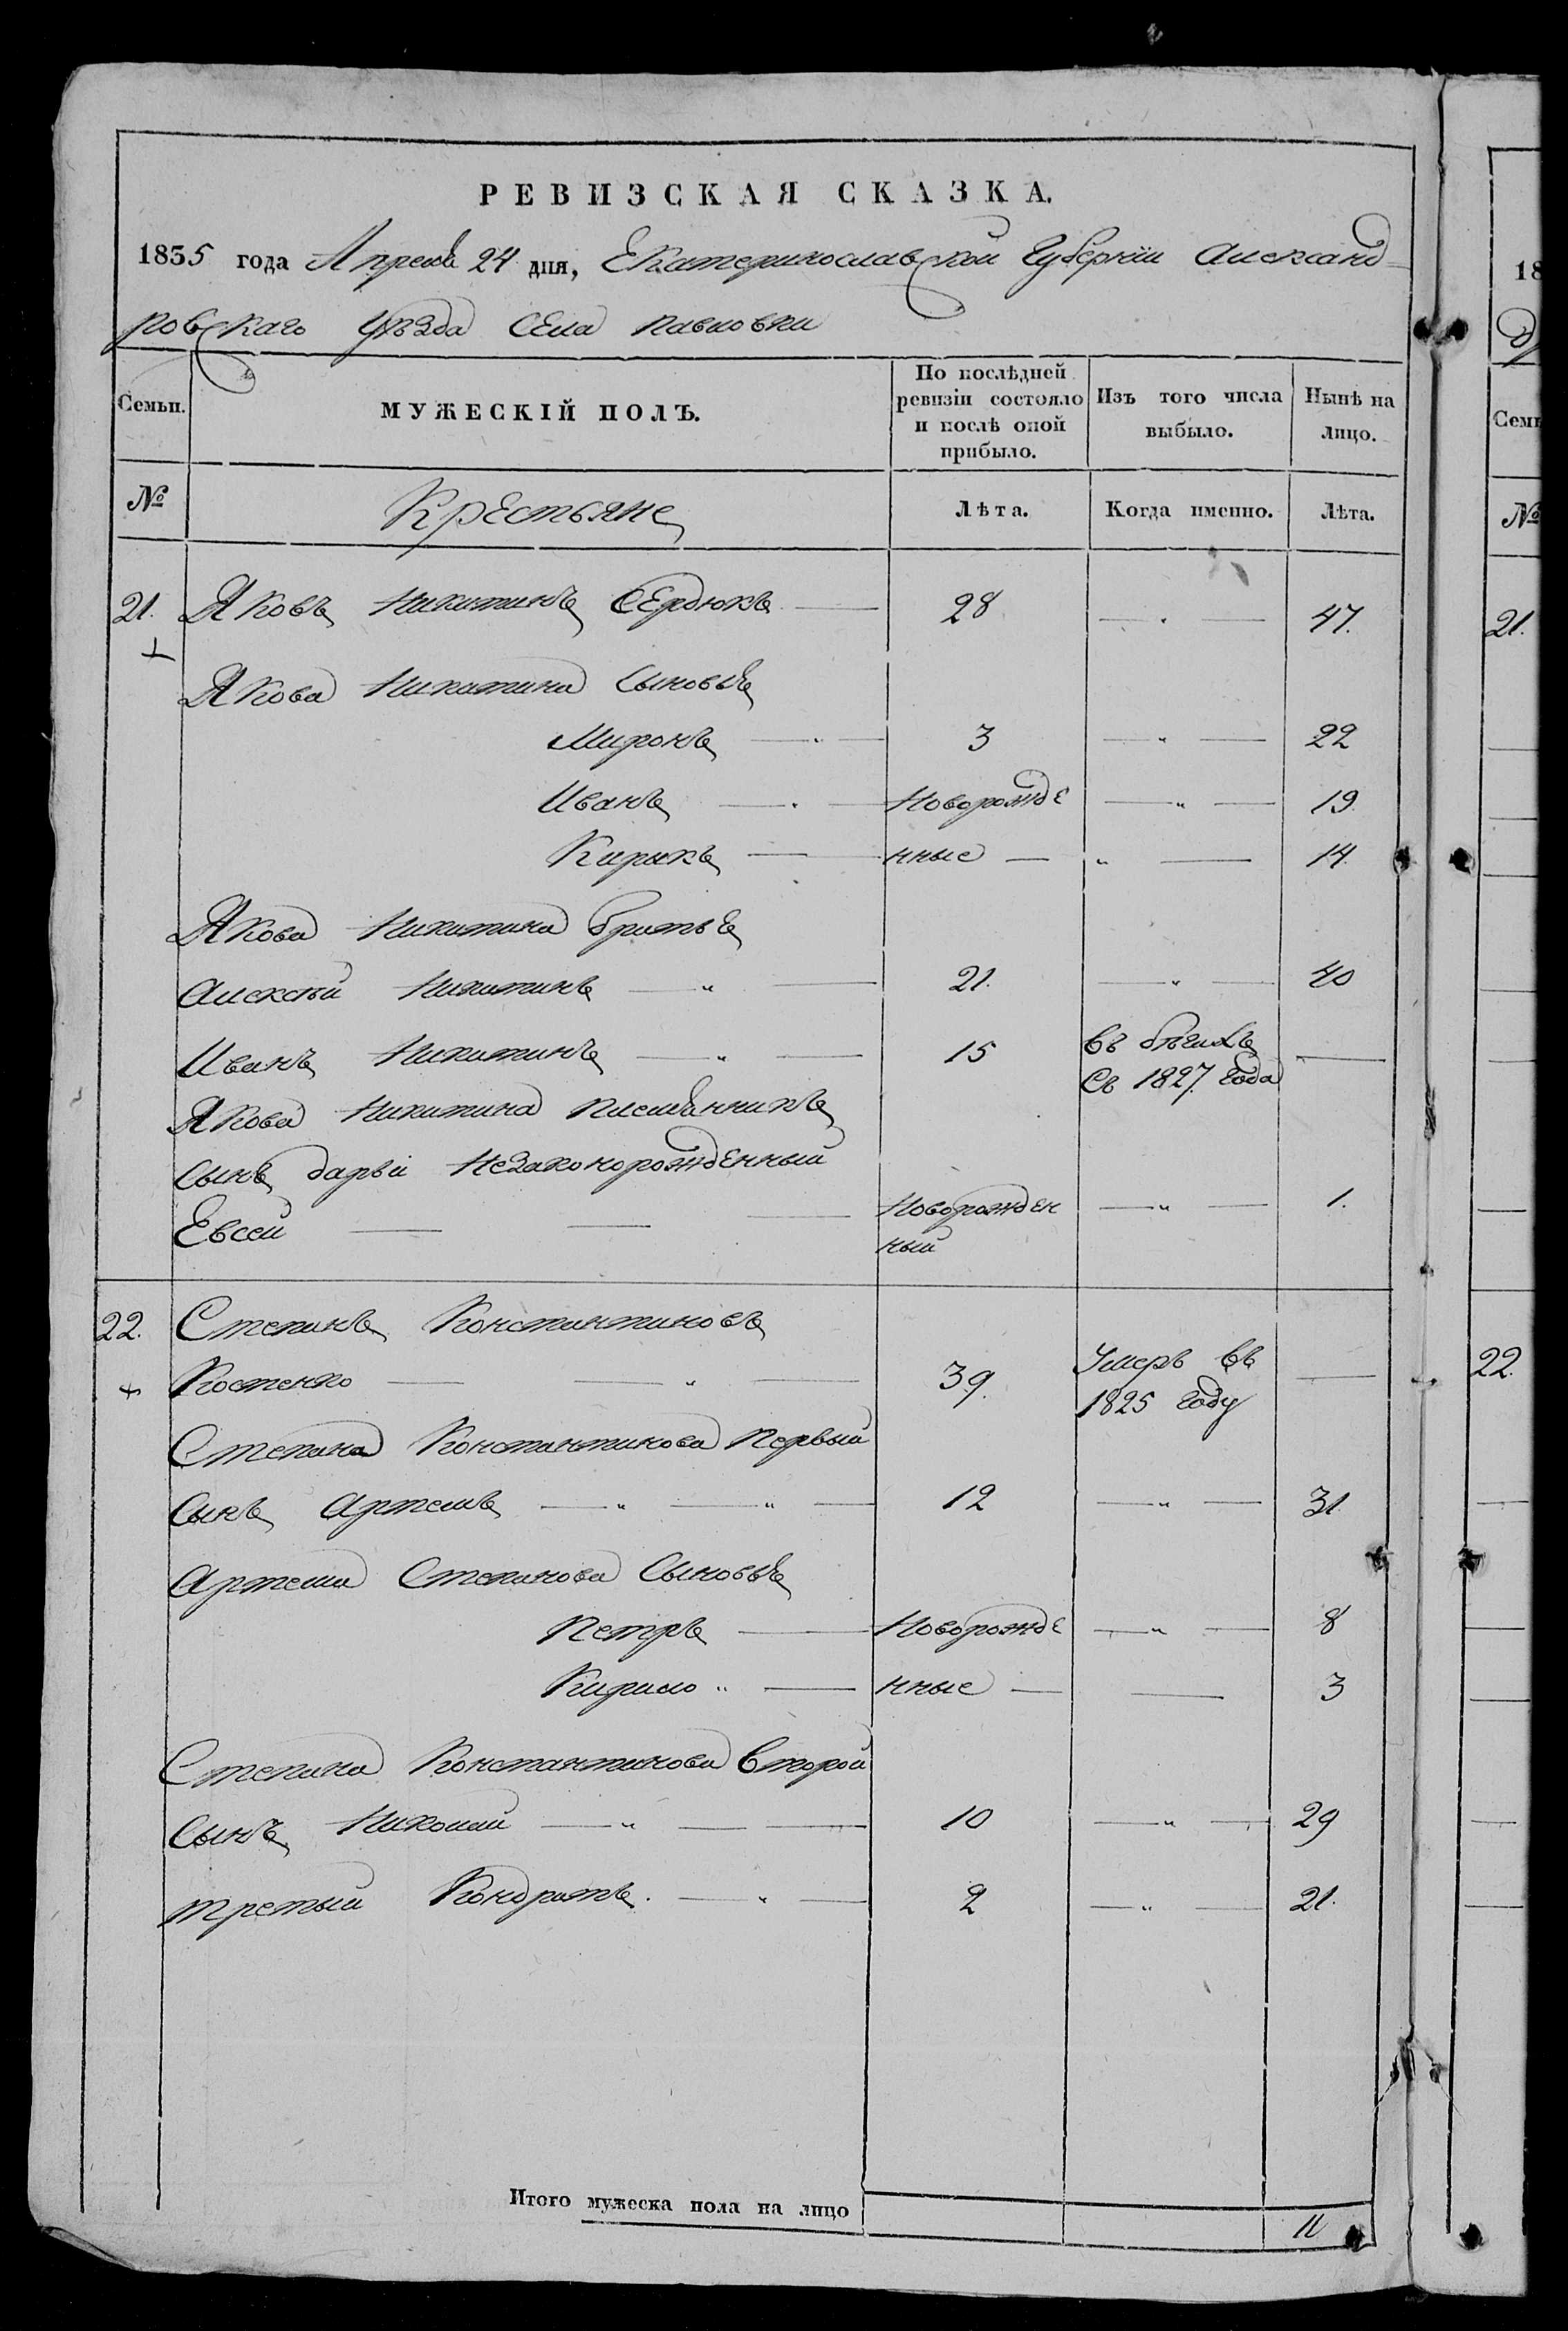 РЕВИЗСКАЯ СКАЗКА.
1835 года Апреля 24 дня, Екатеринославской Губерніи Александ
ровскаго Уѣзда Села Павловки
Семьи. МУЖЕСКІЙ ПОЛЪ. По послѣдней ревизіи состояло и послѣ оной прибыло. Изъ того числа выбыло. Нынѣ на лицо.
№ Крестьяне Лѣта. Когда именно. Лѣта.
21. Яковъ Никитинъ Сердюкъ — 28 — " — 47.
Якова Никитина Сыновья
Миронъ — " — 3 — " — 22
Иванъ — " — Новорожде — " — 19
Кирикъ — нные — " — 14.
Якова Никитина братья
Алексѣй Никитинъ — " — 21. — " — 40
Иванъ Никитинъ — " — 15 Въ бѣгахъ —
Съ 1827 Года
Якова Никитина племянникъ
Сынъ дарьи Незаконорожденный
Евсей — — — Новорожден — " — 1.
ный
22. Степанъ Константиновъ
Костенко — — " — 39. Умеръ въ —
1825 Году
Степана Константинова Первый
Сынъ Артемъ — " — " — 12 — " — 31
Артема Степанова Сыновья
Петръ — Новорожде — " — 8
Кирило " — нные — — 3
Степана Константинова Второй
Сынъ Николай — " — — 10 — " — 29
третый Кондратъ. — " — 2 — " — 21.
Итого мужеска пола на лицо 11
18
Семь
№
21.
22.